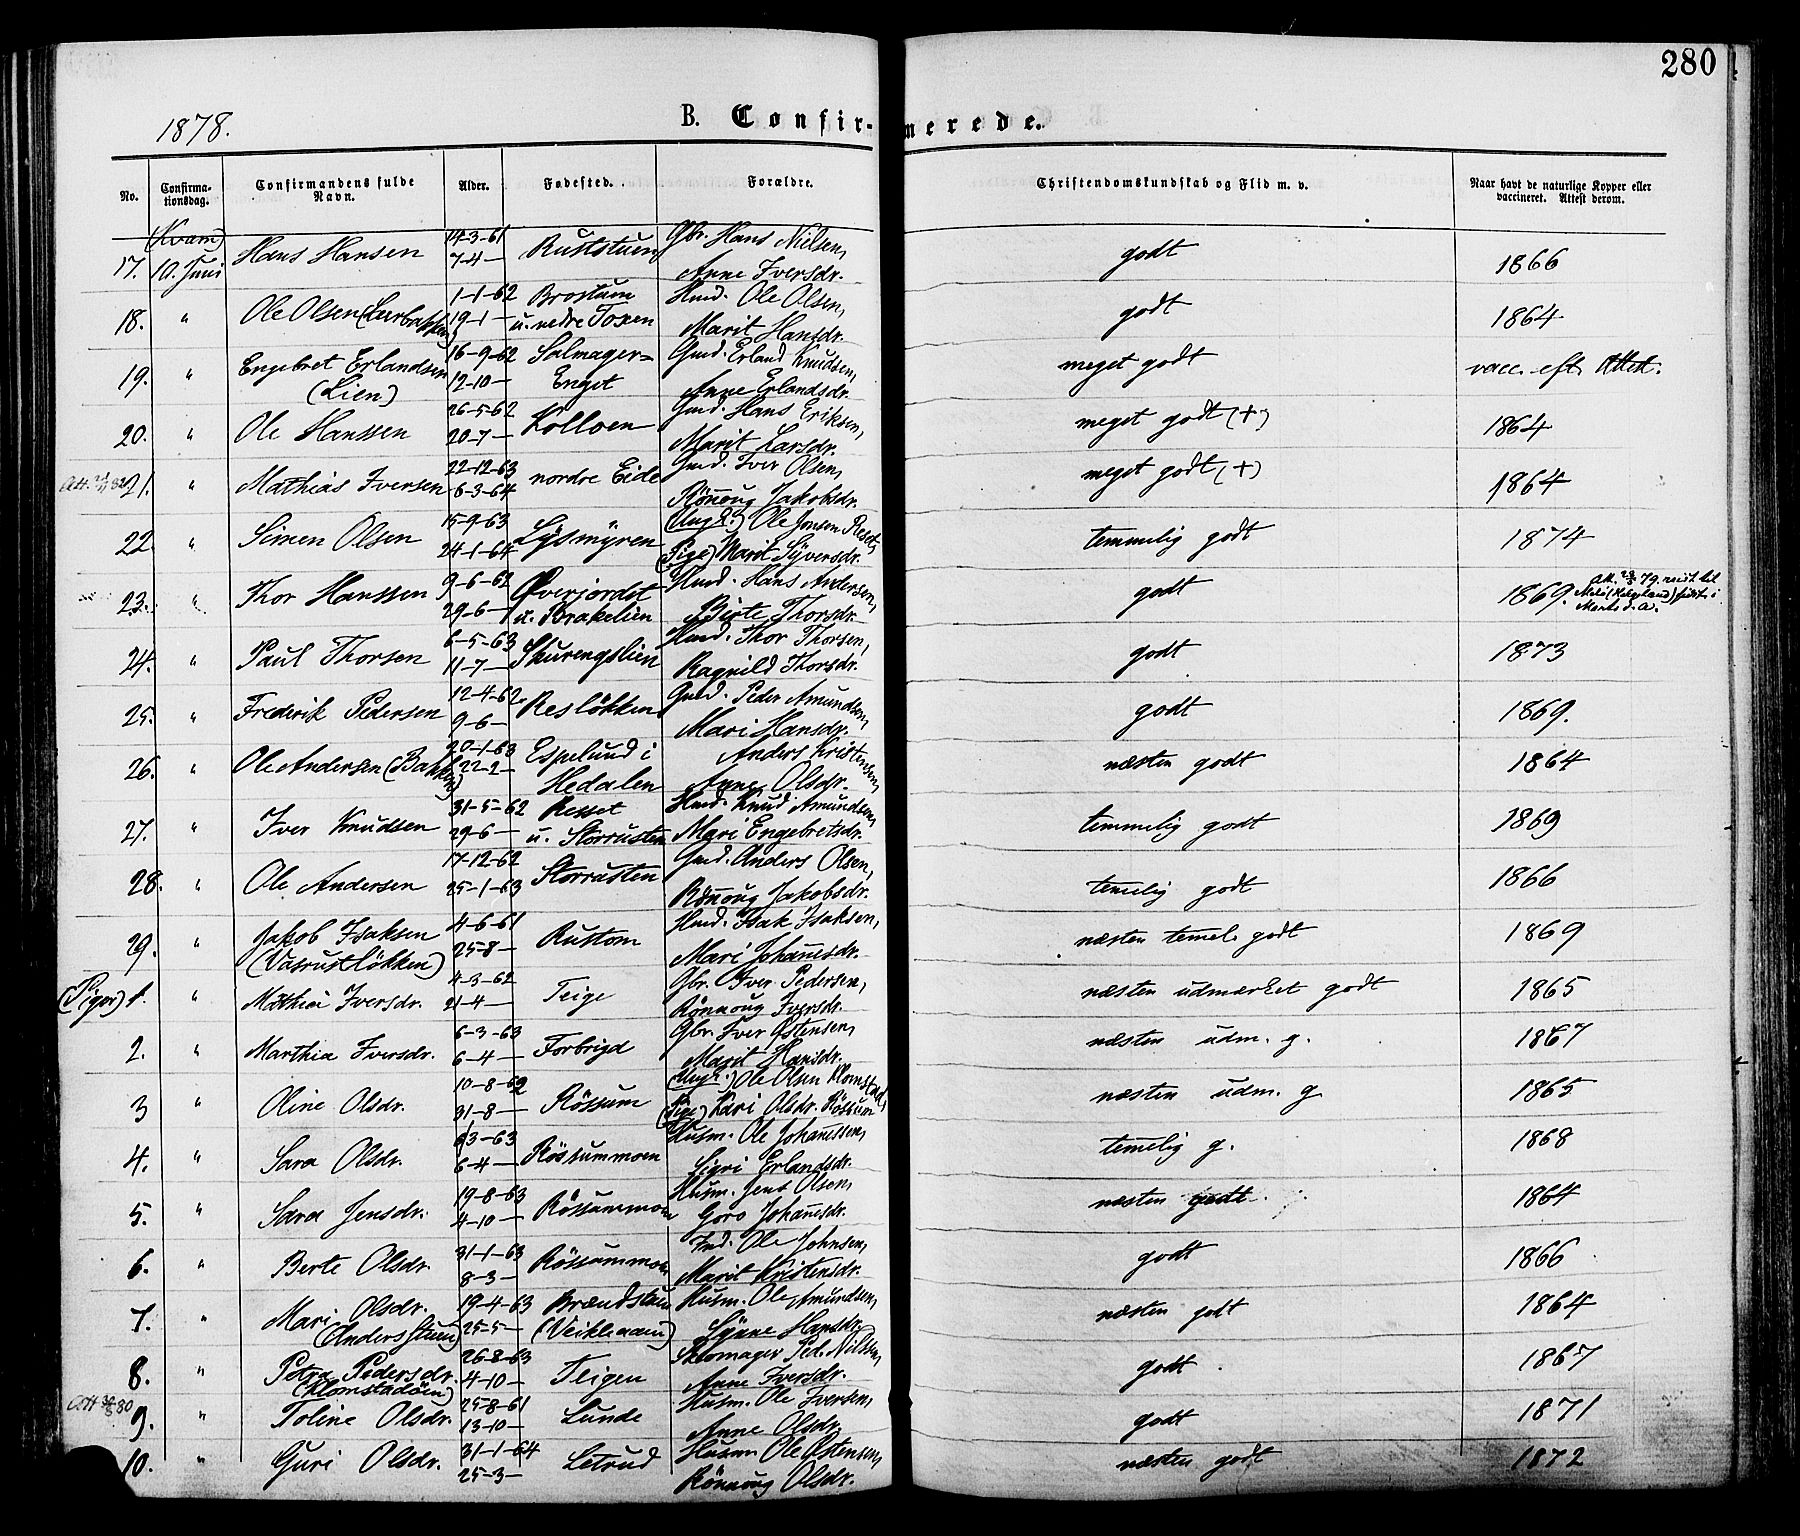 280
1878.
B. Confir- merede.
No. Confirma-tionsdag. Confirmandens fulde Navn. Alder. Fødested. Forældre. Christendomskundskab og Flid m. v. Naar havt de naturlige Kopper eller vaccineret. Attest derom.
(Kvam)
17. 10. Juni Hans Hansen 14-3-61 Ruststuen Gbr. Hans Nielsen, godt 1866
7-4— Anne Iversdr.
18. " Ole Olsen 1-1-62 Brostum Husm. Ole Olsen, godt 1864
19-1— u. nedre Toxen Marit Hansdr.
19. " Engebret Erlandsen 16-9-62 Salmager- Gmd. Erland Knudsen, meget godt vacc. eft. Attest.
(Lien) 12-10— Enget Anne Erlandsdr.
20. " Ole Hanssen 26-5-62 Kolloen Gmd. Hans Eriksen, meget godt (+) 1864
20-7— Marit Larsdr.
21. " Mathias Iversen 22-12-63 nordre Eide Gmd. Iver Olsen, meget godt (+) 1864
6-3-64 Rönnoug Jakobsdr.
22. " Simen Olsen 15-9-63 Lÿsmÿren (Ungk.) Ole Jonsen Reset, temmelig godt 1874
24-1-64 (Pige) Marit Syversdr.
23. " Thor Hanssen 9-6-62 Øverjordet Husm. Hans Andersen, godt 1869.
29-6— u. Brakelien Birte Thorsdr.
24. " Paul Thorsen 6-5-63 Skurengslien Husm. Thor Thorsen, godt 1873
11-7— Ragnild Thorsdr.
25. " Frederik Pedersen 12-4-62 Resløkken Gmd. Peder Amundsen, godt 1869.
9-6— Mari Hansdr.
26. " Ole Andersen (Bakken) 20-1-63 Espelund i Anders Kristensen, næsten godt 1864
22-2— Hedalen Anne Olsdr.
27. " Iver Knudsen 31-5-62 Resset Husm. Knud Amundsen, temmelig godt 1869
29-6— u. Storrusten Mari Engebretsdr.
28. " Ole Andersen 17-12-62 Storrusten Gmd. Anders Olsen, temelig godt 1866
25-1-63 Rönnoug Jakobsdr.
29. " Jakob Isaksen 4-6-61 Rustom Husm. Isak Isaksen, næsten temel. godt 1869
(Vasrustløkken) 25-8— Mari Johanesdr.
(Piger) 1. " Mathia Iversdr. 4-3-62 Teige Gbr. Iver Pedersen, næsten udmærket godt 1865
21-4— Rönnoug Iversdr.
2. " Marthia Iversdr. 6-3-63 Forbrigd Gbr. Iver Østensen, næsten udm. g. 1867
6-4— Marit Hansdr.
3 " Oline Olsdr. 10-8-62 Røssum (Ungk.) Ole Olsen Klomstad, næsten udm. g 1865
31-8— (Pige) Kari Olsdr. Røssum
4. " Sara Olsdr. 3-63 Røssummoen Husm. Ole Johanessen, temelig g. 1868
6-4— Sigri Erlandsdr.
5. " Sara Jensdr. 19-8-63 Røssummoen Husm. Jens Olsen, næsten godt 1864
4-10— Goro Johanesdr.
6. " Berte Olsdr. 31-1-63 Røssummoen Ind. Ole Johnsen, godt 1866
8-3— Marit Kristensdr.
7. " Mari Olsdr. 19-4-63 Brændstuen Husm. Ole Amundsen, næsten godt 1864
(Andersstuen) 25-5— (Veiklemoen) Synne Hansdr.
8. " Petra Pedersdr. 26-8-63 Teigen Skomager Ped. Nilssen, godt 1867
(Klomstadøen) 4-10— Anne Iversdr.
9. " Toline Olsdr. 25-8-61 Lunde Husm. Ole Iversen, godt 1871
13-10— Anne Olsdr.
10. " Guri Olsdr. 31-1-64 Letrud Husm. Ole Østensen, næsten godt 1872
25-3— Rönnoug Olsdr.